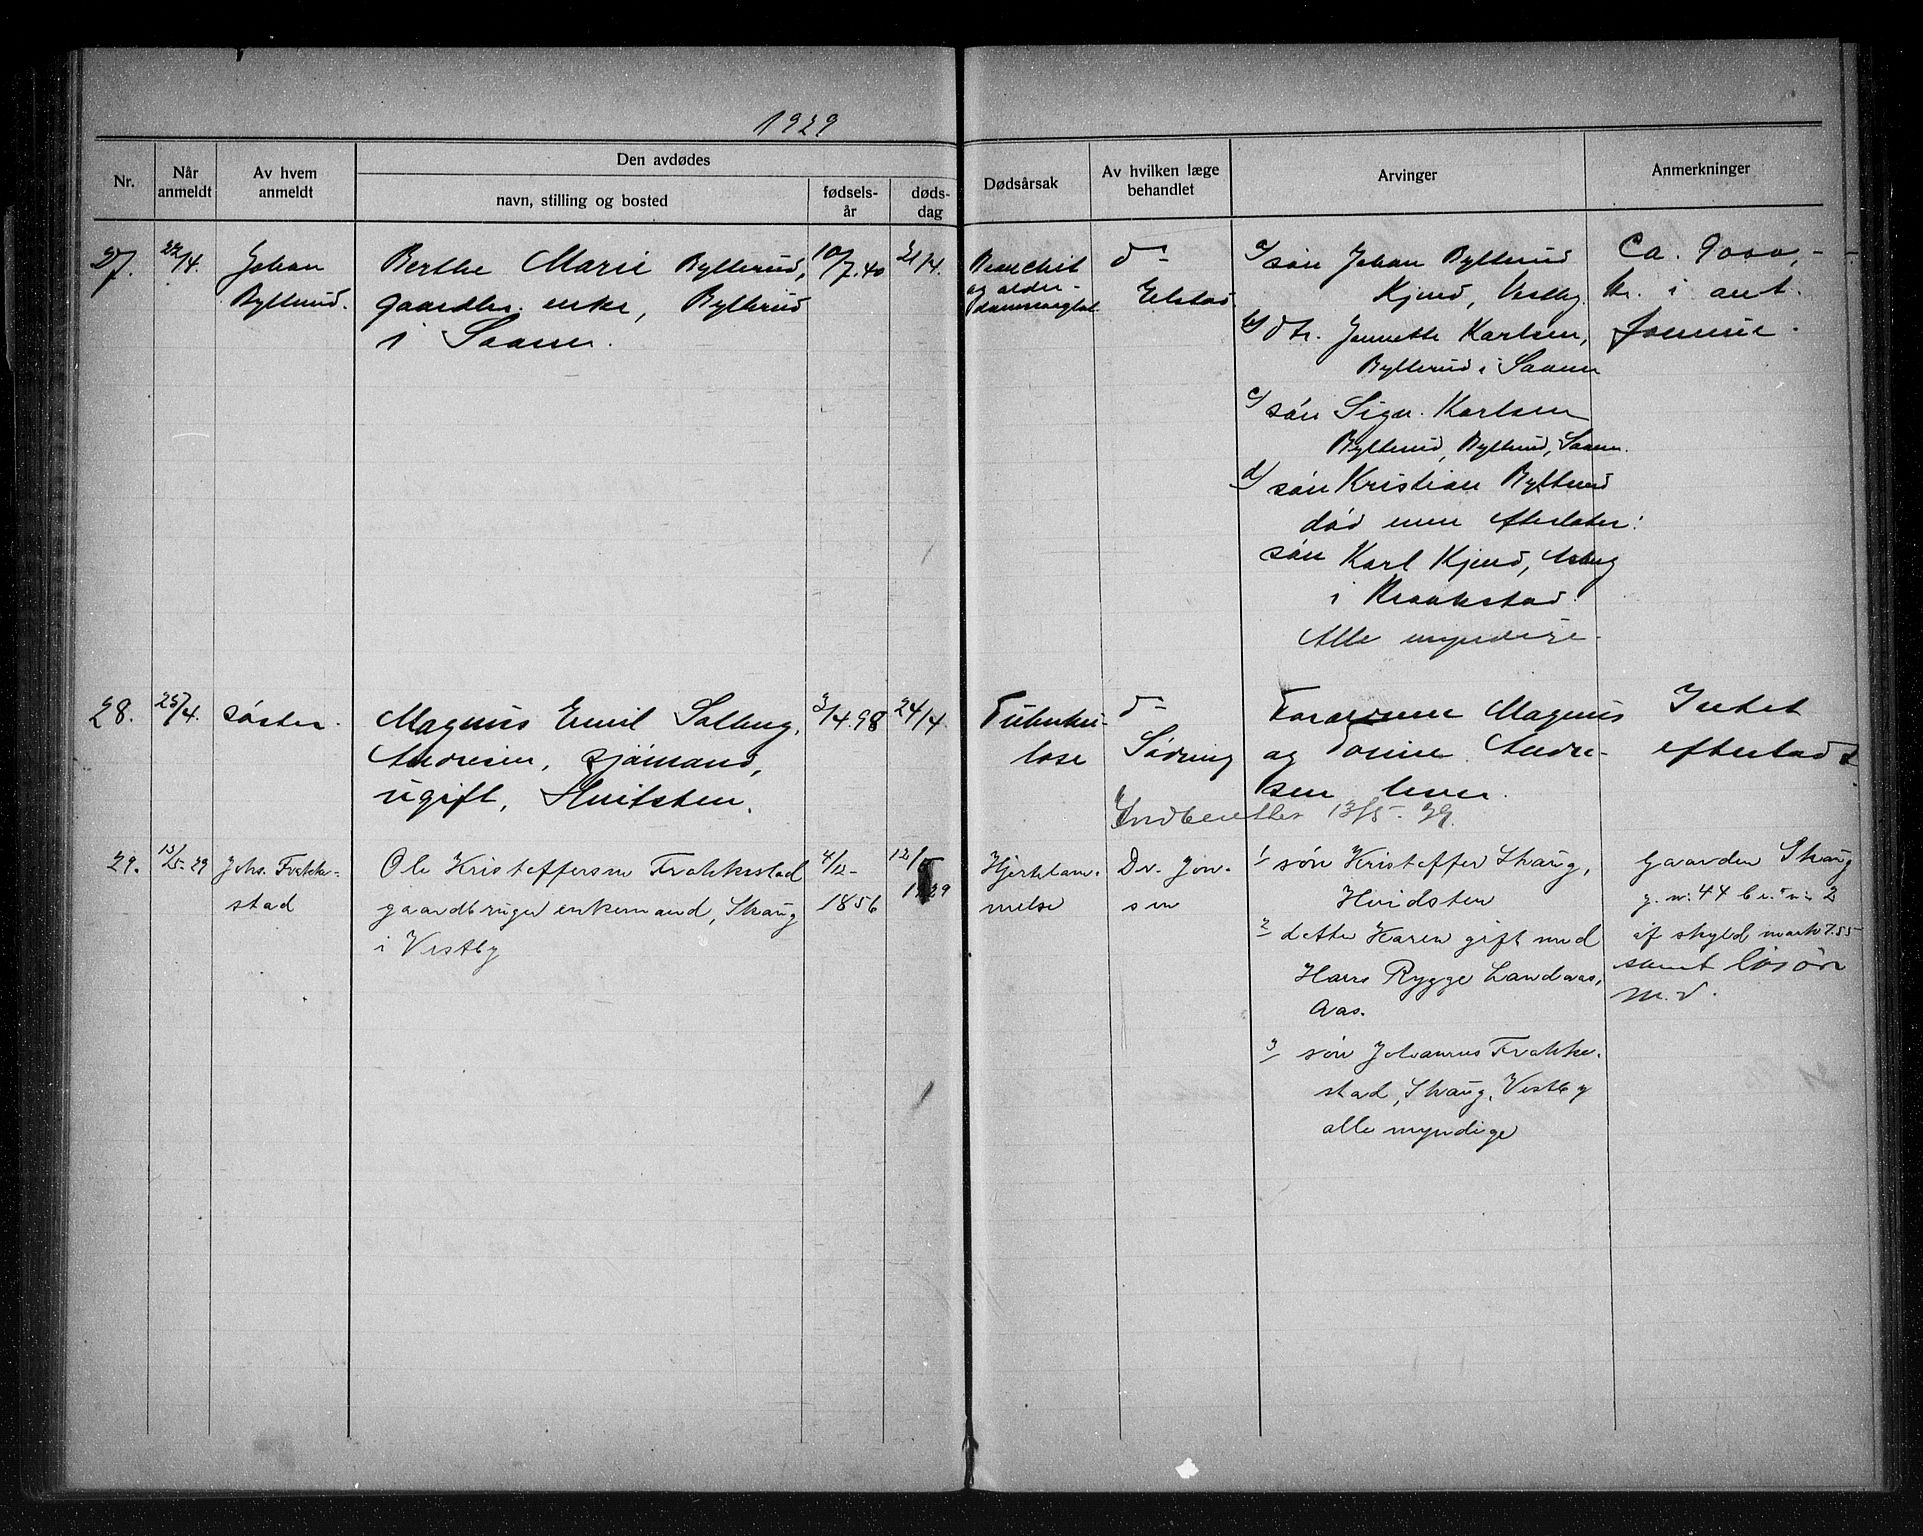 1929
Nr.
Når anmeldt
Av hvem anmeldt
Den avdødes
navn, stilling og bosted
fødsels-år
døds-dag
Dødsårsak
Av hvilken læge behandlet
Arvinger
Anmerkninger
27.
22/4.
Johan
Bylterud.
Berthe Marie Bylterud,
gaardbr. enke, Bylterud
i Saaner.
10/7.40
21/4.
Bronchit
og alder-
domssvaghet
dr
Elstad
a/ søn Johan Bylterud
Kjend, Vestby.
b/ dtr. Jannette Karlsen,
Bylterud i Saaner
c/ søn Sign. Karlsen
Bylterud, Bylterud, Saaner.
d/ søn Kristian Bylterud
død men efterlater:
søn Karl Kjend,
i Kraakstad.
Alle myndige.
Ca. 9000,-
kr. i ant.
formue.
28.
25/4.
søster.
Magnus Emil Solberg
Andresen, sjømand,
ugift, Hvitsten.
3/4.98
24/4.
Tuberku-
lose
dr
Sødring
Forældrene Magnus
og Tomine Andre-
sen lever.
Intet
efterladt
Indberettet 13/5-29.
29.
13/5-29
Johs. Frakke-
stad
Ole Kristoffersen Frakkestad
gaardbruger enkemand, Skaug
i Vestby
4/12-
1856
12/5
1929
Hjertelam-
melse
Dr. Jon-
sen
1/ søn Kristoffer Skaug,
Hvidsten
2/ datter Karen gift med
Hans Rygge Landaas,
Aas.
3/ søn Johannes Frakke-
stad, Skaug, Vestby
alle myndige
Gaarden Skaug
g. nr. 44 br. nr. 2
af skyld mark 7.55
samt løsøre
m.v.